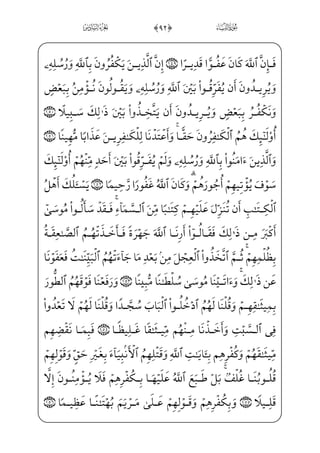 الجزء السادس ﴿٩٢﴾ سورة النساء
فَإِنَّ ٱللَّهَ كَانَ عَفُوّٗا قَدِيرًا ١٤٩ إِنَّ ٱلَّذِينَ يَكۡفُرُونَ بِٱللَّهِ وَرُسُلِهِۦ
وَيُرِيدُونَ أَن يُفَرِّقُواْ بَيۡنَ ٱللَّهِ وَرُسُلِهِۦ وَيَقُولُونَ نُؤۡمِنُ بِبَعۡضٖ
وَنَكۡفُرُ بِبَعۡضٖ وَيُرِيدُونَ أَن يَتَّخِذُواْ بَيۡنَ ذَٰلِكَ سَبِيلًا ١٥٠
أُوْلَٰٓئِكَ هُمُ ٱلۡكَٰفِرُونَ حَقّٗاۚ وَأَعۡتَدۡنَا لِلۡكَٰفِرِينَ عَذَابٗا مُّهِينٗا ١٥١
وَٱلَّذِينَ ءَامَنُواْ بِٱللَّهِ وَرُسُلِهِۦ وَلَمۡ يُفَرِّقُواْ بَيۡنَ أَحَدٖ مِّنۡهُمۡ أُوْلَٰٓئِكَ
سَوۡفَ يُؤۡتِيهِمۡ أُجُورَهُمۡۚ وَكَانَ ٱللَّهُ غَفُورٗا رَّحِيمٗا ١٥٢ يَسۡـَٔلُكَ أَهۡلُ
ٱلۡكِتَٰبِ أَن تُنَزِّلَ عَلَيۡهِمۡ كِتَٰبٗا مِّنَ ٱلسَّمَآءِۚ فَقَدۡ سَأَلُواْ مُوسَىٰٓ
أَكۡبَرَ مِن ذَٰلِكَ فَقَالُوٓاْ أَرِنَا ٱللَّهَ جَهۡرَةٗ فَأَخَذَتۡهُمُ ٱلصَّٰعِقَةُ
بِظُلۡمِهِمۡۚ ثُمَّ ٱتَّخَذُواْ ٱلۡعِجۡلَ مِنۢ بَعۡدِ مَا جَآءَتۡهُمُ ٱلۡبَيِّنَٰتُ فَعَفَوۡنَا
عَن ذَٰلِكَۚ وَءَاتَيۡنَا مُوسَىٰ سُلۡطَٰنٗا مُّبِينٗا ١٥٣ وَرَفَعۡنَا فَوۡقَهُمُ ٱلطُّورَ
بِمِيثَٰقِهِمۡ وَقُلۡنَا لَهُمُ ٱدۡخُلُواْ ٱلۡبَابَ سُجَّدٗا وَقُلۡنَا لَهُمۡ لَا تَعۡدُواْ
فِي ٱلسَّبۡتِ وَأَخَذۡنَا مِنۡهُم مِّيثَٰقًا غَلِيظٗا ١٥٤ فَبِمَا نَقۡضِهِم
مِّيثَٰقَهُمۡ وَكُفۡرِهِم بِـَٔايَٰتِ ٱللَّهِ وَقَتۡلِهِمُ ٱلۡأَنۢبِيَآءَ بِغَيۡرِ حَقّٖ وَقَوۡلِهِمۡ
قُلُوبُنَا غُلۡفُۢۚ بَلۡ طَبَعَ ٱللَّهُ عَلَيۡهَا بِكُفۡرِهِمۡ فَلَا يُؤۡمِنُونَ إِلَّا
قَلِيلٗا ١٥٥ وَبِكُفۡرِهِمۡ وَقَوۡلِهِمۡ عَلَىٰ مَرۡيَمَ بُهۡتَٰنًا عَظِيمٗا ١٥٦